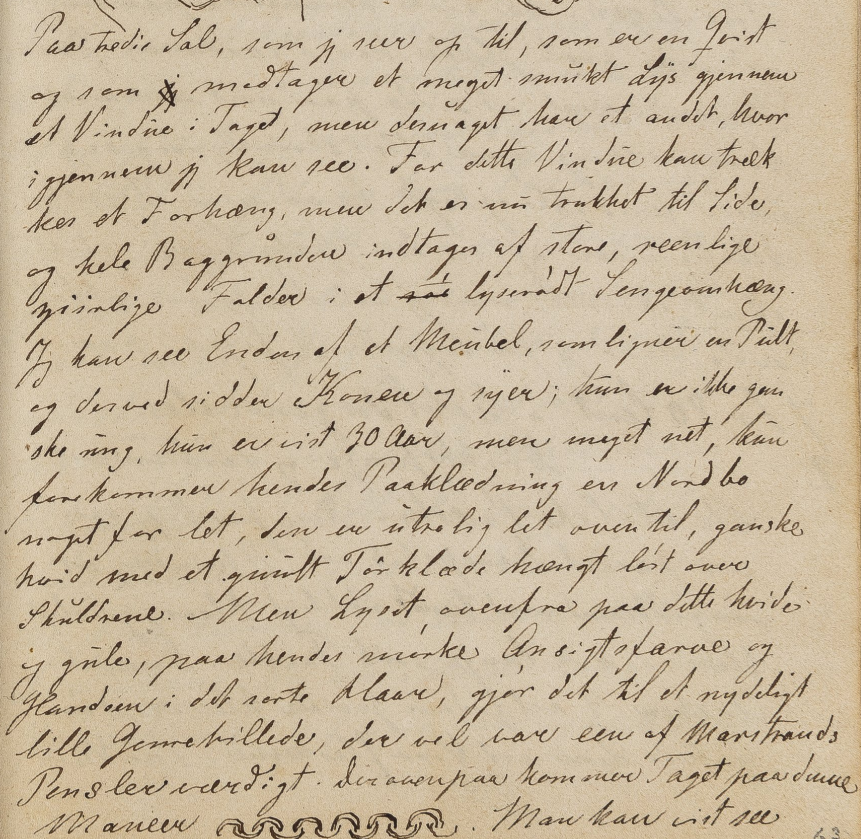 Paa tredie Sal, som jg seer op til, som er en Qvist
og som modtager et meget smukt Lys gjennem
et Vindue i Taget, men desuaget har et andet, hvor
igjennem jg kan see. For dette Vindue kan træk
kes et Forhæng, men det er nu trukket til Side,
og hele Baggrunden indtages af store, reenlige
ziirlige Folder i et lyserødt Sengeomhæng.
Jg kan see Enden af et Meubel, som ligner en Pult,
og derved sidder Konen og syer; hun er ikke gan
ske ung, hun er vist 30 Aar, men meget net, kun
forekommer hendes Paaklædning en Nordbo
noget for let, den er utrolig let oventil, ganske
hvid med et guult Tørklæde hængt løst over
Skuldrene. Men Lyset ovenfra paa dette hvide
og gule, paa hendes mørke Ansigtsfarve og
Glandsen i det sorte Haar, gjør det til et nydeligt
lille Genrebillede, der vel var een af Marstrands
Pensler værdigt. Derovenpaa kommer Taget paa denne
Maneer . Man kan vist see
63